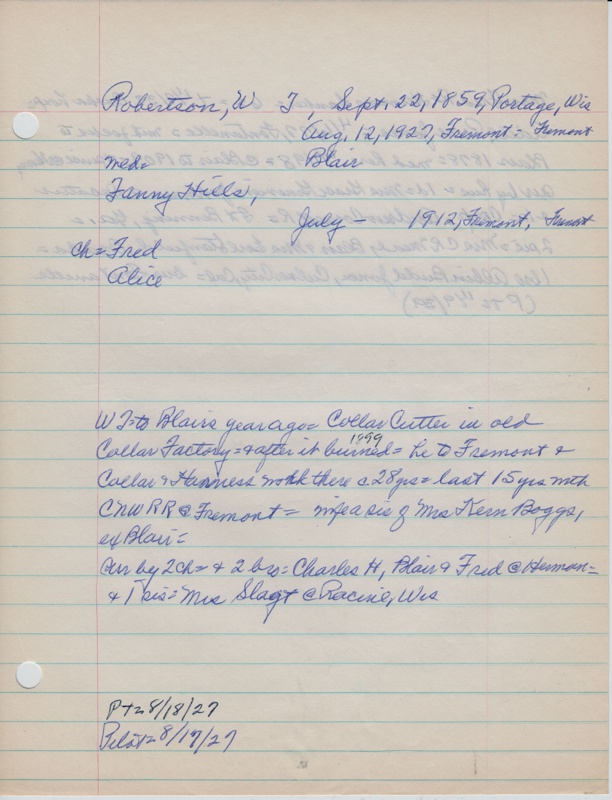 Robertson, W T, Sept. 22, 1859, Portage, Wis
Aug. 12, 1927, Fremont = Fremont
med= Blair
Fanny Hills,
July - 1912, Fremont, Fremont
ch= Fred
Alice
W T=to Blair years ago= Collar Cutter in old
1899
Collar Factory=&after it burned= he to Fremont &
Collar & Harness work there c 28yrs= last 15 yrs with
CNW RR @ Fremont= wife a sis of Mrs Kern Boggs,
ex Blair=
Sur by 2ch= & 2 bro= Charles H, Blair & Fred @ Herman=
& 1 sis= Mrs Slagt @ Racine, Wis
P+= 8/18/27
Pilot= 8/17/27